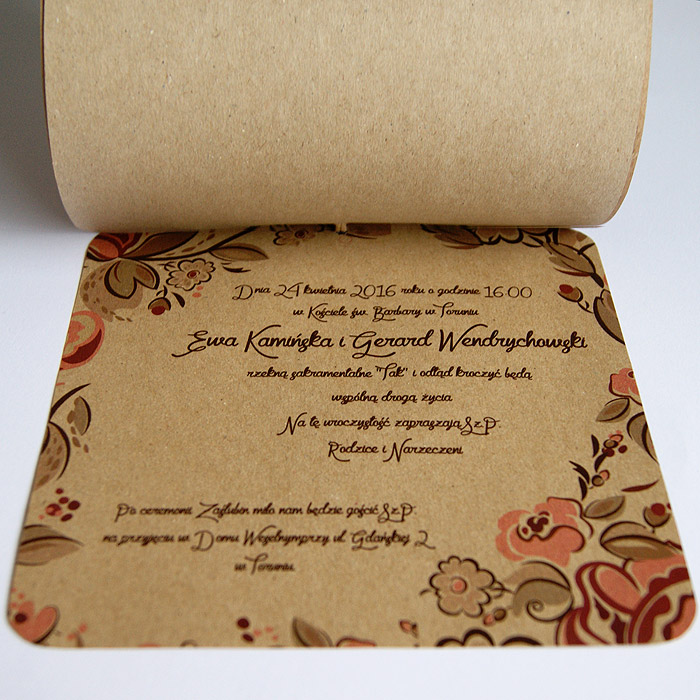 Dnia 24 kwietnia 2016 roku o godzinie 16.00
w Kościele św. Barbary w Toruniu
Ewa Kamińska i Gerard Wendrychowski
rzekną sakramentalne "Tak" i odtąd kroczyć będą
wspólną drogą życia
Na tę uroczystość zapraszają Sz.P.
Rodzice i Narzeczeni
Po ceremonii Zaślubin miło nam będzie gościć Sz.P.
na przyjęciu w Domu Weselnymprzy ul. Gdańskiej 2
w Toruniu.